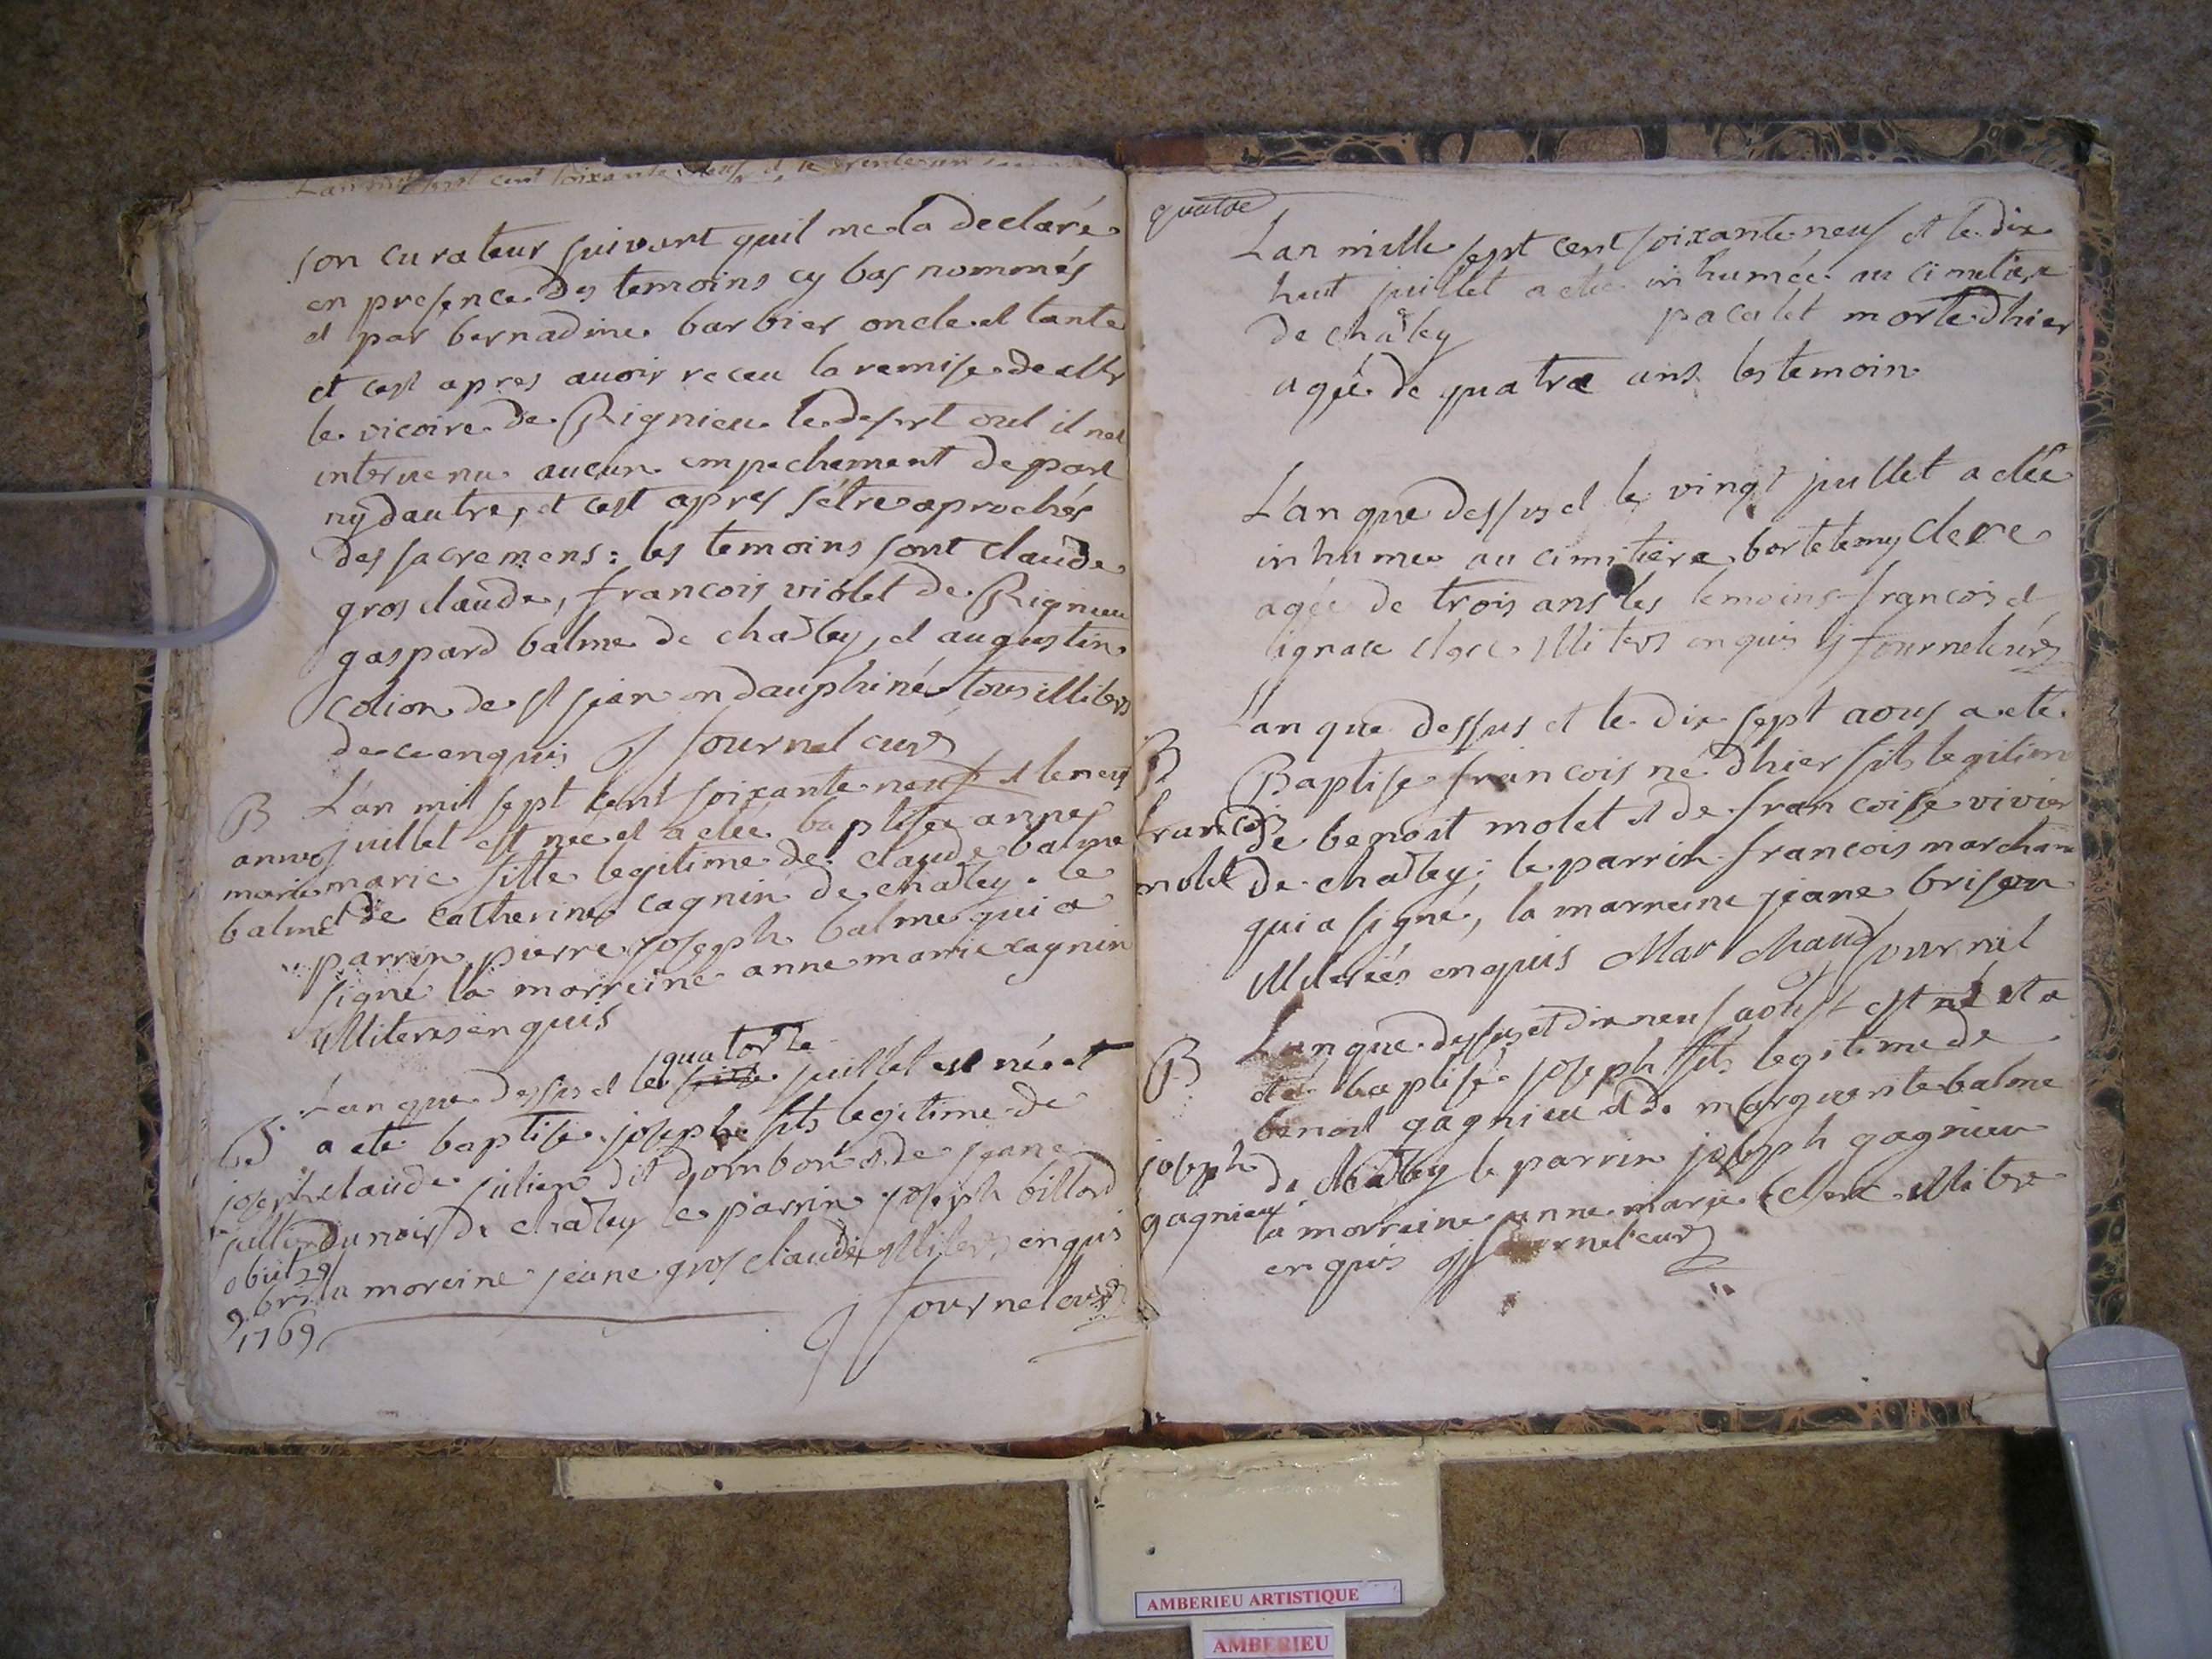 L'an mil sept cent soixante neuf et le trente un
son curateur suivant quil me la declaré
en presence des temoins cy bas nommés
et par bernadine barbier oncle et tante
et cest apres avoir receu la remise de
le vicaire de Rignieu le desert ou il nes
intervenu aucun empechement de part
ny dautre, et cest apres sétre aprochés
des sacremens: les temoins sont claude
gros claude, francois violet de Rignieu
gaspard balme de chatley, et augustin
cotion de st jean en dauphiné tous illiters
de ce enquis j fournel curé
B L'an mil sept cent soixante neuf et le neuf
anne juillet est neé et a eteé baptisée anne
marie marie fille legitime de claude balme
balme et de catherine cagnin de chatley. le
parrin pierre joseph balme qui a
signé la marreine anne marie cagnin
illiteres enquis
quatorze
L'an que dessus et le juillet est né et
B a eté baptisé joseph fils legitime de
joseph claude julien dit dombon et de jeane
jullien dunoir de chatley le parrin joseph billard
obiit 29 la moreine jeane gros claude illiters enquis
9bris
1769 j fournel curé
quatre
L'an mille sept cent soixante neuf et le dix
huit juillet a eteé inhumée au cimetiere
de chatley pacalet morte dhier
agée de quatre ans les temoin
L'an que dessus et le vingt juillet a etée
inhumee au cimitiere bartelemy clere
agée de trois ans les temoins francois et
ignace clerc illiters enquis j fournel curé
L'an que dessus et le dix sept aous a eté
B Baptisé francois né dhier fils legitim
francois de benoit molet et de francoise vivier
molet de chatley; le parrin francois marchand
qui a signé, la marreine jeane brison
illiterées enquis Marchand j fournel
L'an que dessus et dix neuf aoust est né et a
B été baptisé joseph fils legitime de
benoit gagnieu et de marguerite balme
joseph de chatley le parrin joseph gagnieu
gagnieu la marreine anne marie clerc illitere
enquis j fournel curé
AMBERIEU ARTISTIQUE
AMBERIEU